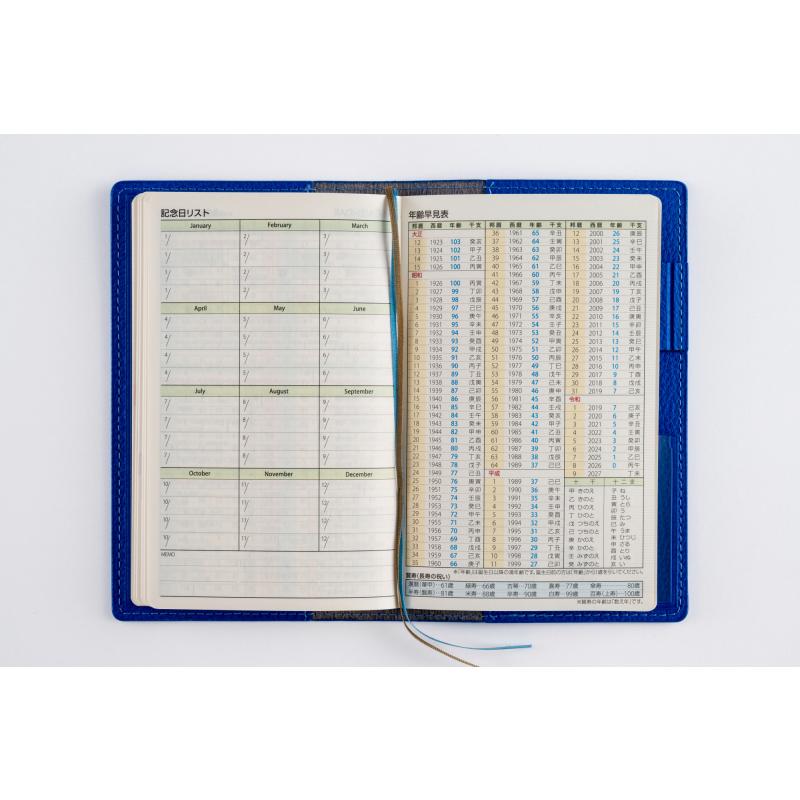 記念日リスト
January February March
1/ 2/ 3/
1/ 2/ 3/
1/ 2/ 3/
1/ 2/ 3/
April May June
4/ 5/ 6/
4/ 5/ 6/
4/ 5/ 6/
4/ 5/ 6/
July August September
7/ 8/ 9/
7/ 8/ 9/
7/ 8/ 9/
7/ 8/ 9/
October November December
10/ 11/ 12/
10/ 11/ 12/
10/ 11/ 12/
10/ 11/ 12/
MEMO
年齢早見表
邦暦 西暦 年齢 干支
大正
12 1923 103 癸亥
13 1924 102 甲子
14 1925 101 乙丑
15 1926 100 丙寅
昭和
1 1926 100 丙寅
2 1927 99 丁卯
3 1928 98 戊辰
4 1929 97 己巳
5 1930 96 庚午
6 1931 95 辛未
7 1932 94 壬申
8 1933 93 癸酉
9 1934 92 甲戌
10 1935 91 乙亥
11 1936 90 丙子
12 1937 89 丁丑
13 1938 88 戊寅
14 1939 87 己卯
15 1940 86 庚辰
16 1941 85 辛巳
17 1942 84 壬午
18 1943 83 癸未
19 1944 82 甲申
20 1945 81 乙酉
21 1946 80 丙戌
22 1947 79 丁亥
23 1948 78 戊子
24 1949 77 己丑
25 1950 76 庚寅
26 1951 75 辛卯
27 1952 74 壬辰
28 1953 73 癸巳
29 1954 72 甲午
30 1955 71 乙未
31 1956 70 丙申
32 1957 69 丁酉
33 1958 68 戊戌
34 1959 67 己亥
35 1960 66 庚子
邦暦 西暦 年齢 干支
36 1961 65 辛丑
37 1962 64 壬寅
38 1963 63 癸卯
39 1964 62 甲辰
40 1965 61 乙巳
41 1966 60 丙午
42 1967 59 丁未
43 1968 58 戊申
44 1969 57 己酉
45 1970 56 庚戌
46 1971 55 辛亥
47 1972 54 壬子
48 1973 53 癸丑
49 1974 52 甲寅
50 1975 51 乙卯
51 1976 50 丙辰
52 1977 49 丁巳
53 1978 48 戊午
54 1979 47 己未
55 1980 46 庚申
56 1981 45 辛酉
57 1982 44 壬戌
58 1983 43 癸亥
59 1984 42 甲子
60 1985 41 乙丑
61 1986 40 丙寅
62 1987 39 丁卯
63 1988 38 戊辰
64 1989 37 己巳
平成
1 1989 37 己巳
2 1990 36 庚午
3 1991 35 辛未
4 1992 34 壬申
5 1993 33 癸酉
6 1994 32 甲戌
7 1995 31 乙亥
8 1996 30 丙子
9 1997 29 丁丑
10 1998 28 戊寅
11 1999 27 己卯
邦暦 西暦 年齢 干支
12 2000 26 庚辰
13 2001 25 辛巳
14 2002 24 壬午
15 2003 23 癸未
16 2004 22 甲申
17 2005 21 乙酉
18 2006 20 丙戌
19 2007 19 丁亥
20 2008 18 戊子
21 2009 17 己丑
22 2010 16 庚寅
23 2011 15 辛卯
24 2012 14 壬辰
25 2013 13 癸巳
26 2014 12 甲午
27 2015 11 乙未
28 2016 10 丙申
29 2017 9 丁酉
30 2018 8 戊戌
31 2019 7 己亥
令和
1 2019 7 己亥
2 2020 6 庚子
3 2021 5 辛丑
4 2022 4 壬寅
5 2023 3 癸卯
6 2024 2 甲辰
7 2025 1 乙巳
8 2026 0 丙午
9 2027 丁未
十干
甲 きのえ
乙 きのと
丙 ひのえ
丁 ひのと
戊 つちのえ
己 つちのと
庚 かのえ
辛 かのと
壬 みずのえ
癸 みずのと
十二支
子 ね
丑 うし
寅 とら
卯 う
辰 たつ
巳 み
午 うま
未 ひつじ
申 さる
酉 とり
戌 いぬ
亥 い
※「年齢」は誕生日以降の満年齢です。誕生日前の方は「年齢」から1歳を引いてください。
賀寿(長寿の祝い)
還暦(華甲)…61歳 緑寿…66歳 古稀…70歳 喜寿…77歳 傘寿……80歳
半寿(盤寿)…81歳 米寿…88歳 卒寿…90歳 白寿…99歳 百寿(上寿)…100歳
※賀寿の年齢は「数え年」です。